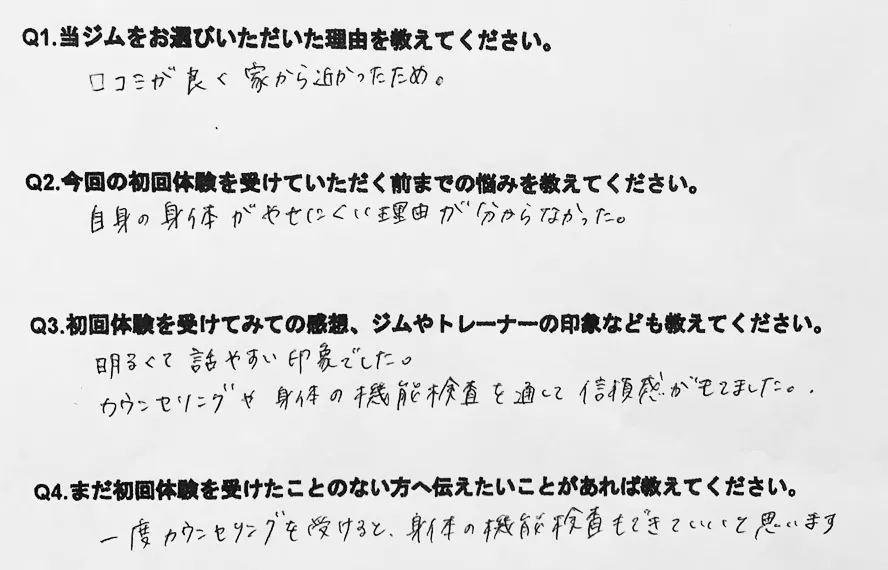 Q1.当ジムをお選びいただいた理由を教えてください。
口コミが良く家から近かったため。
Q2.今回の初回体験を受けていただく前までの悩みを教えてください。
自身の身体がやせにくい理由が分からなかった。
Q3.初回体験を受けてみての感想、ジムやトレーナーの印象なども教えてください。
明るくて話やすい印象でした。
カウンセリングや身体の機能検査を通して信頼感がもてました。
Q4.まだ初回体験を受けたことのない方へ伝えたいことがあれば教えてください。
一度カウンセリングを受けると、身体の機能検査もできていいと思います